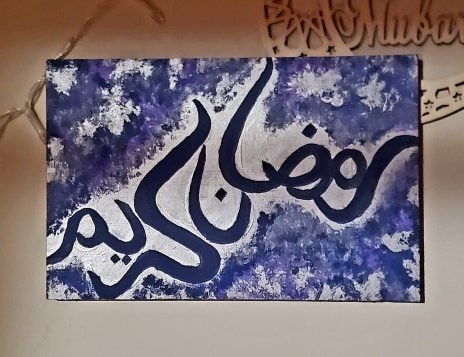 Mubar
رمضان كريم